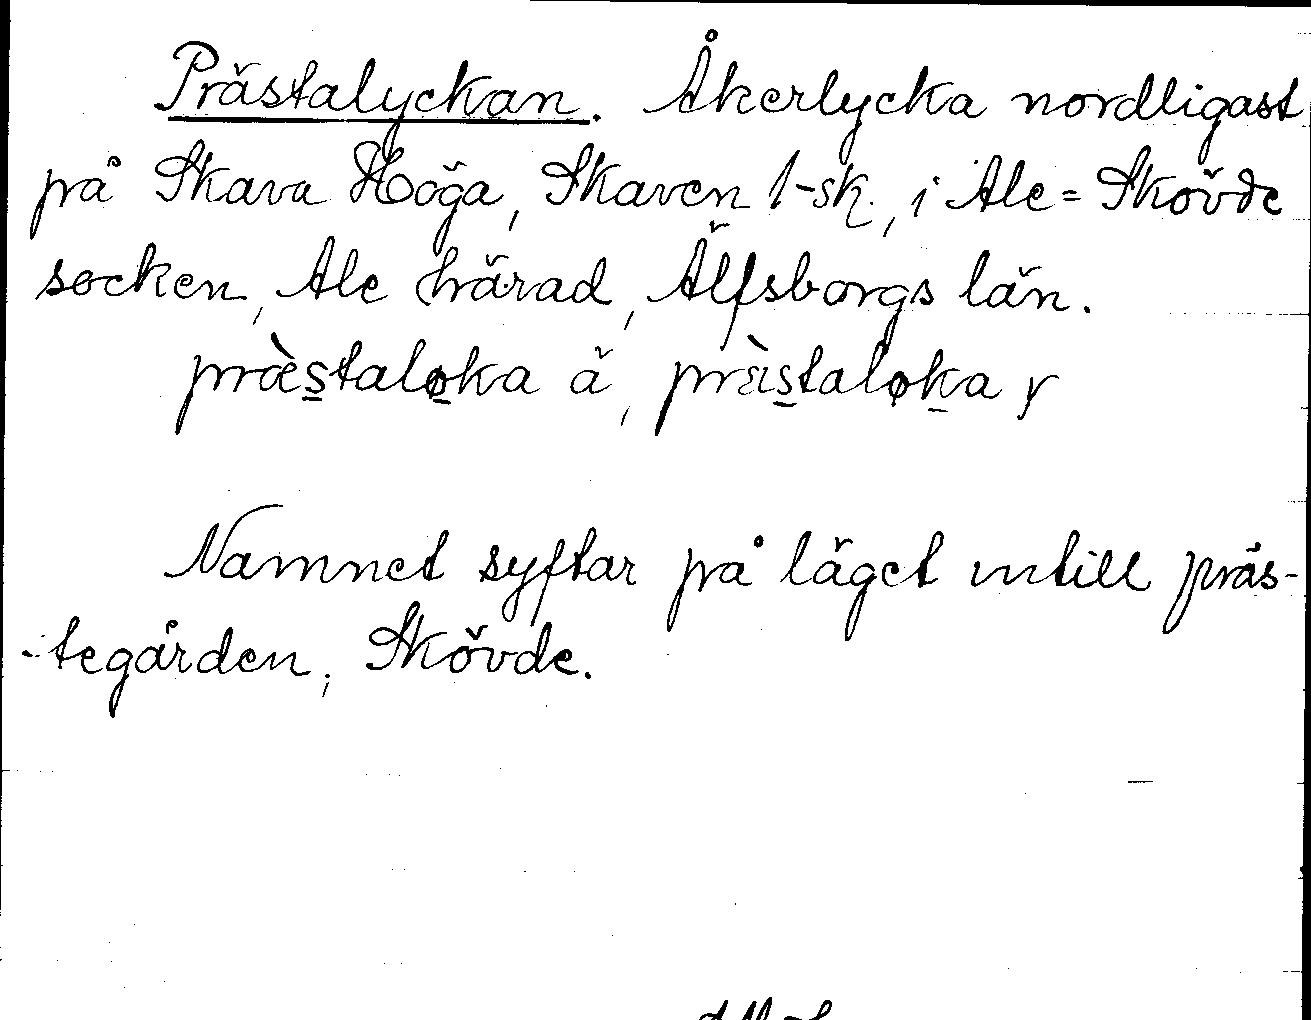 Prästalyckan. Åkerlycka nordligast
på Skava Höga, Skaven 1-sk., i Ale=Skövde
socken, Ale härad, Älfsborgs län.
præ̀staløka ä, prä̀staløka y
Namnet syftar på läget intill präs-
tegården, Skövde.